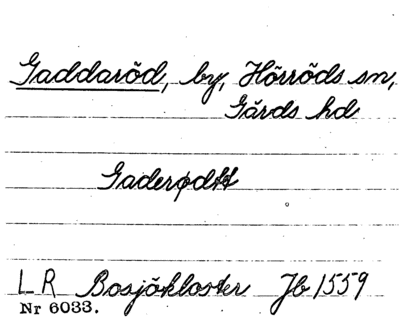 Gaddaröd, by, Hörröds sn,
Gärds hd
Gaderødtt
LR Bosjökloster Jb 1559
Nr 6033.